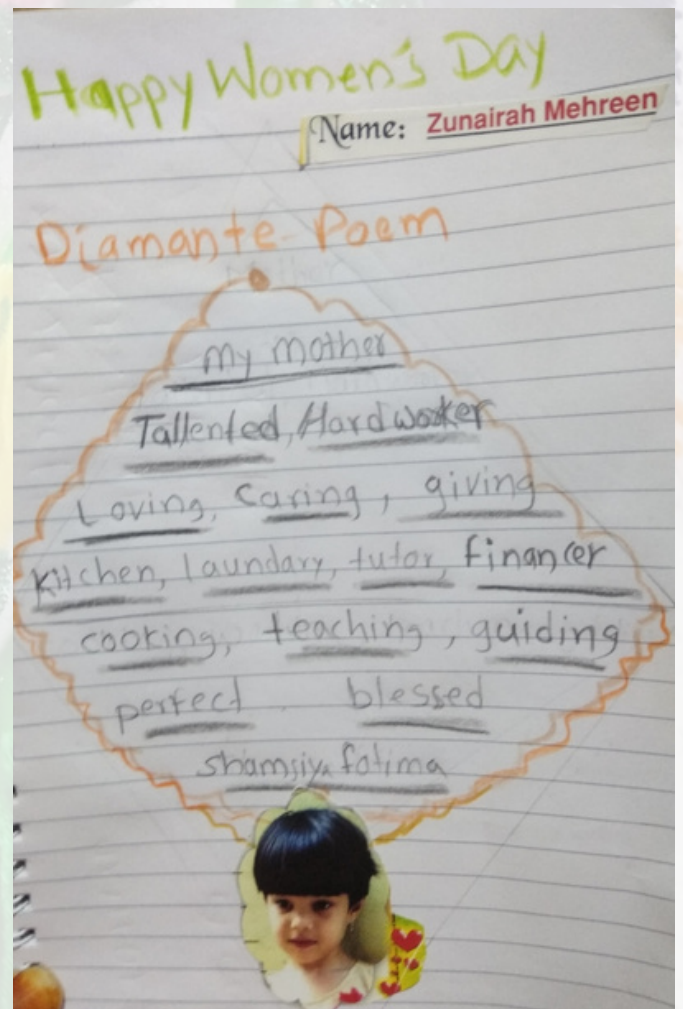 Happy Women's Day
Name: Zunairah Mehreen
Diamante-Poem
my mother
Tallented, Hardworker
Loving, Caring, giving
kitchen, laundary, tutor, financer
cooking, teaching, guiding
perfect blessed
shamsiya fatima